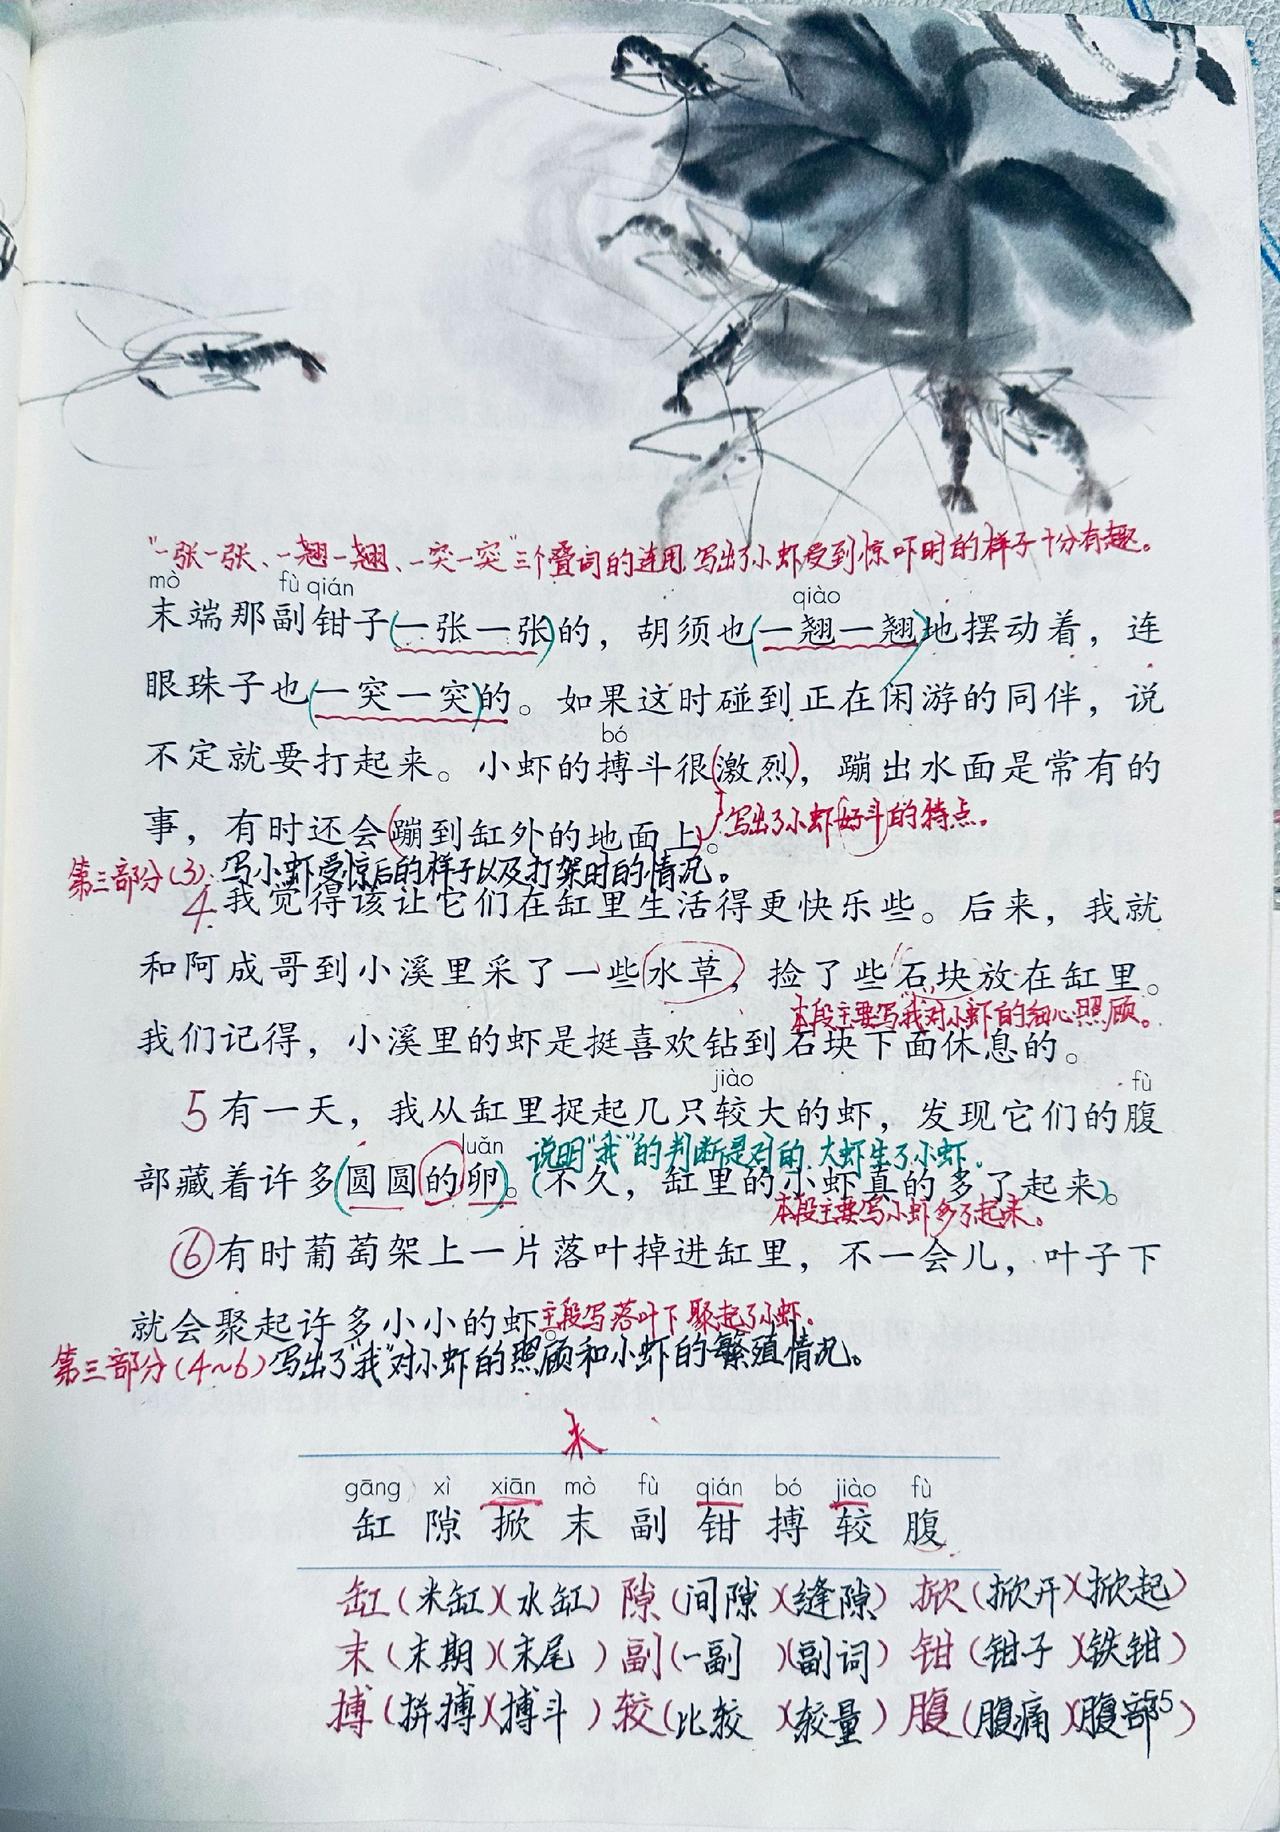 “一张一张、一翘一翘、一突一突”三个叠词的连用,写出了小虾受到惊吓时的样子十分有趣。
mò fù qián qiào
末端那副钳子(一张一张)的，胡须也(一翘一翘)地摆动着，连
眼珠子也(一突一突)的。如果这时碰到正在闲游的同伴，说
bó
不定就要打起来。小虾的搏斗很(激烈)，蹦出水面是常有的
事，有时还会(蹦到缸外的地面上)。写出了小虾好斗的特点。
第三部分(3):写小虾受惊后的样子以及打架时的情况。
4.我觉得该让它们在缸里生活得更快乐些。后来，我就
和阿成哥到小溪里采了一些水草，捡了些石块放在缸里。
本段主要写“我”对小虾的细心照顾。
我们记得，小溪里的虾是挺喜欢钻到石块下面休息的。
jiào fù
5有一天，我从缸里捉起几只较大的虾，发现它们的腹
luǎn 说明“我”的判断是对的,大虾生了小虾。
部藏着许多(圆圆的卵)。(不久，缸里的小虾真的多了起来)。
本段主要写小虾多了起来。
⑥有时葡萄架上一片落叶掉进缸里，不一会儿，叶子下
就会聚起许多小小的虾。主段写落叶下聚起了小虾。
第三部分(4~6)写出了“我”对小虾的照顾和小虾的繁殖情况。
末
gāng xì xiān mò fù qián bó jiào fù
缸 隙 掀 末 副 钳 搏 较 腹
缸(米缸)(水缸) 隙(间隙)(缝隙) 掀(掀开)(掀起)
末(末期)(末尾) 副(一副)(副词) 钳(钳子)(铁钳)
搏(拼搏)(搏斗) 较(比较)(较量) 腹(腹痛)(腹部)
55